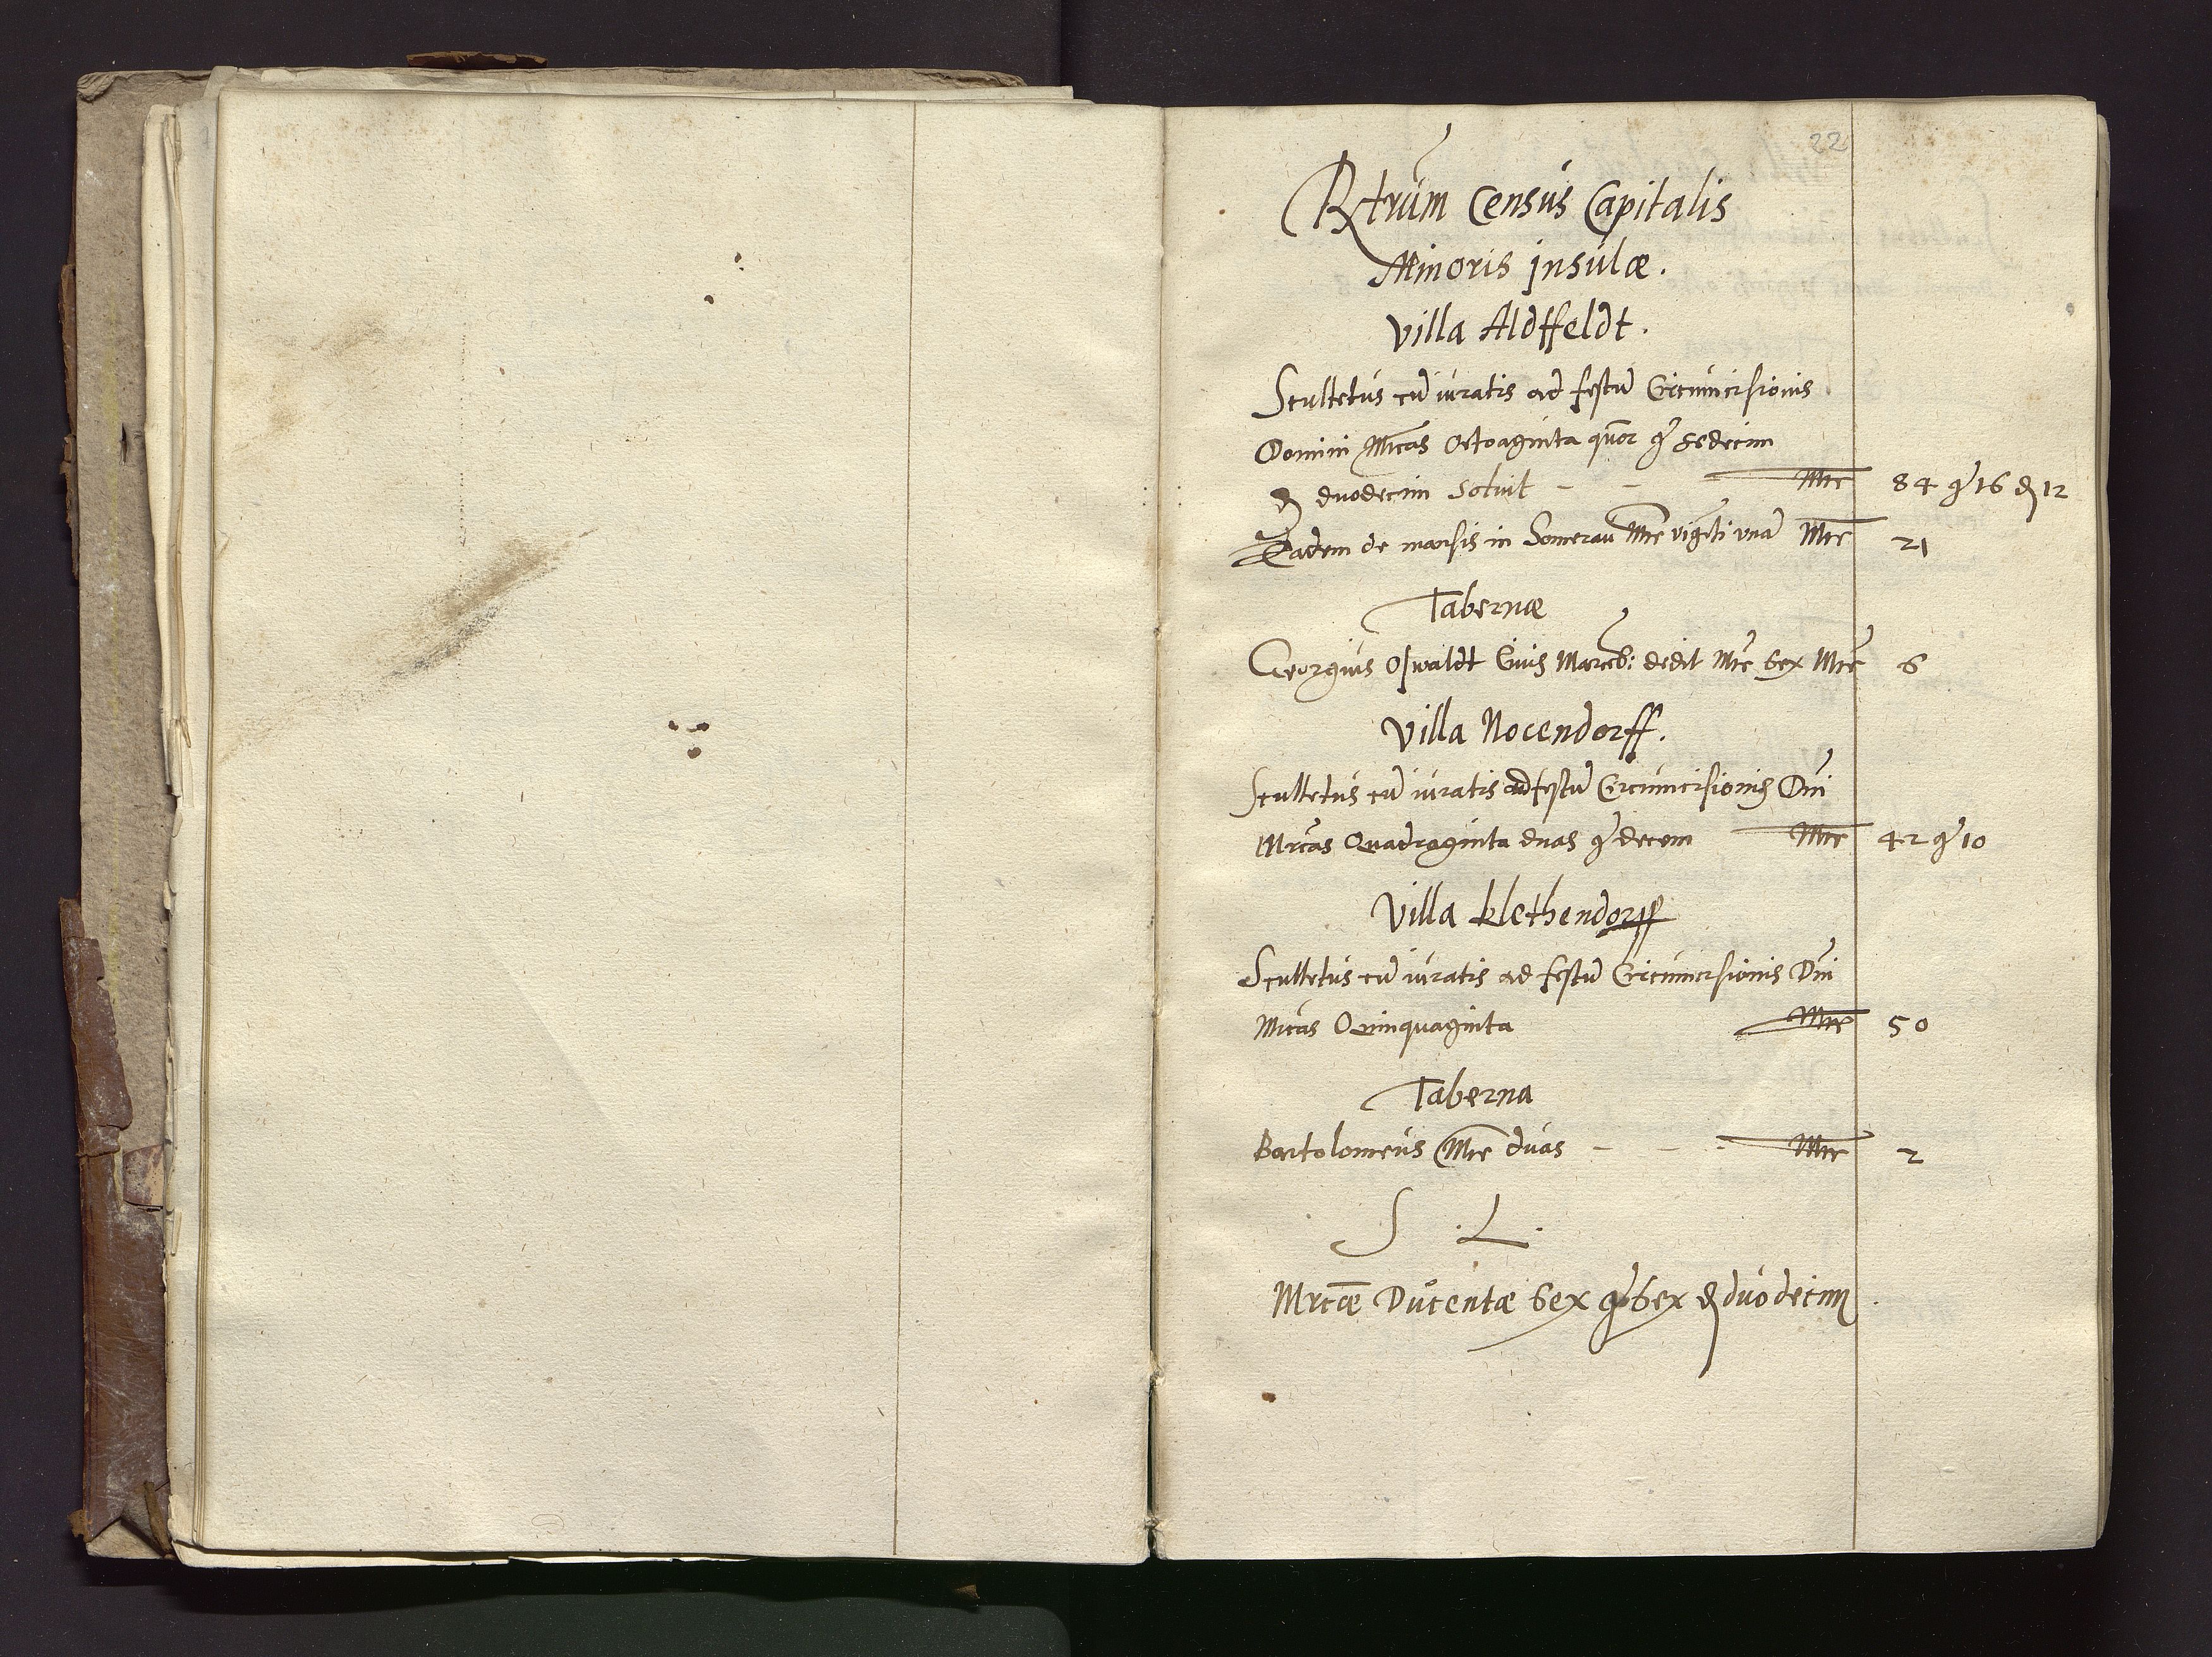 22
Rtrum Census Capitalis
Minoris insulæ.
Villa Aldffeldt.
Scultetus cu̅ iuratis ad festu̅ Circumcisionis
Domini Mrcas Octoaginta quor gr̃ sedecim
₰ duodecim soluit – – Mrc 84 gr̃ 16 ₰ 12
Eadem de mansis in Somerau Mrc vige̅ti vna̅ Mrc 21
Tabernæ
Georgius Oswaldt Ciuis Marieb: dedit Mrc sex Mrc 6
Villa Nocendorff.
Scultetus cu̅ iuratis ad festu̅ Circumcisionis Dni
Mrcas Quadraginta duas gr̃ decem Mrc 42 gr̃ 10
Villa Klethendorff
Scultetus cu̅ iuratis ad festu̅ Circumcisionis Dni
Mrcas Quinquaginta Mrc 50
Taberna
Bartolomeus Mrc duas – – - Mrc 2
S .L.
Mrcæ Ducentæ sex gr̃ sex ₰ duodecim.